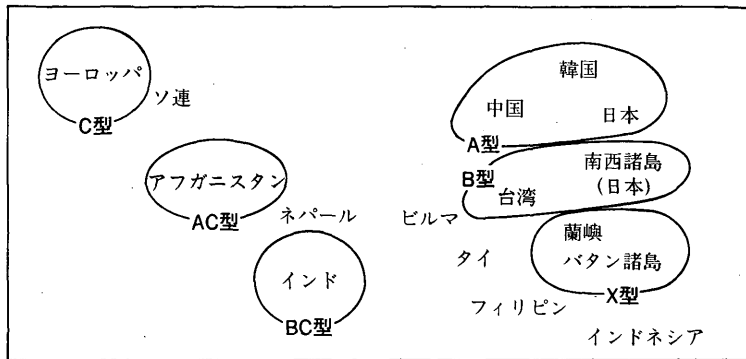 ヨーロッパ
ソ連
C型
アフガニスタン
AC型
ネパール
インド
BC型
韓国
中国
日本
A型
B型
南西諸島
(日本)
台湾
ビルマ
蘭嶼
タイ
バタン諸島
X型
フィリピン
インドネシア